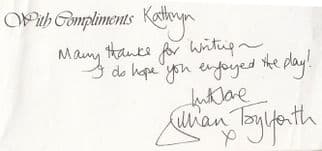 With Compliments Kathryn
Many thanks for writing ~
I do hope you enjoyed the play!
with love
Gillian Taylforth
x